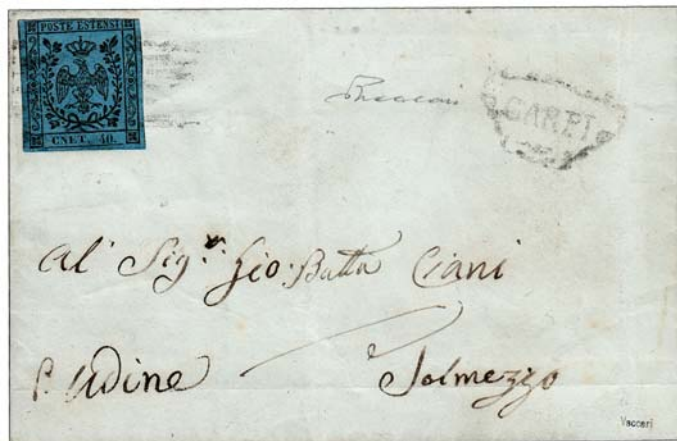 POSTE ESTENSI
CNET. 40.
CARPI
Al' Sig.r Gio: Batta Ciani
P. Udine Tolmezzo
Vaccari